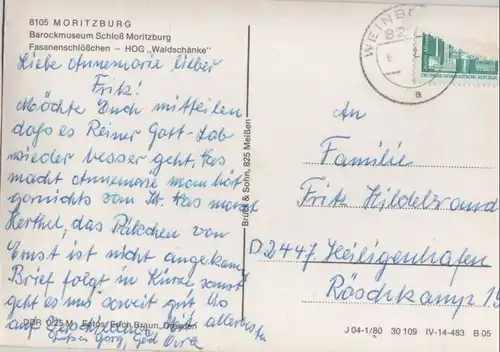 8105 MORITZBURG
Barockmuseum Schloß Moritzburg
Fasanenschlößchen – HOG „Waldschänke"
Liebe Annemarie lieber
Fritz!
Möchte Euch mitteilen
daß es Reiner Gott-Lob
wieder besser geht. Was
macht Annemarie man hört
garnichts vom Dr. Was macht
Herthel, das Päkchen von
Ernst ist nicht angekom
Brief folgt in Kürze, sonst
geht es uns soweit gut
auf
allerbesten
DDR 0,25 M Fotos: Erich Braun, Dresden
Brück & Sohn, 825 Meißen
WEINB
82
a
DEUTSCHE DEMOKRATISCHE REPUBLIK
An
Familie
Fritz Hildebrand
D 2447 Heiligenhafen
Röschkamp 19
J 04-1/80 30 109 IV-14-483 B 05